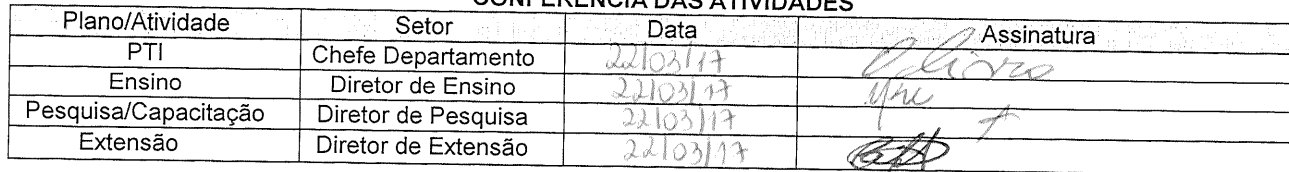 CONFERÊNCIA DAS ATIVIDADES
Plano/Atividade Setor Data Assinatura
PTI Chefe Departamento 22/03/17
Ensino Diretor de Ensino 22/03/17
Pesquisa/Capacitação Diretor de Pesquisa 22/03/17
Extensão Diretor de Extensão 22/03/17